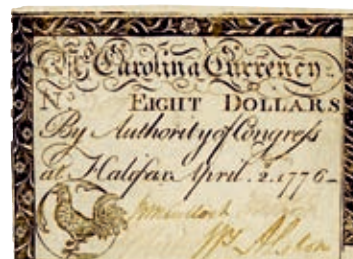 Nº Carolina Currency.
Nº EIGHT DOLLARS
By Authority of Congress
at Halifax April. 2. 1776
Alston